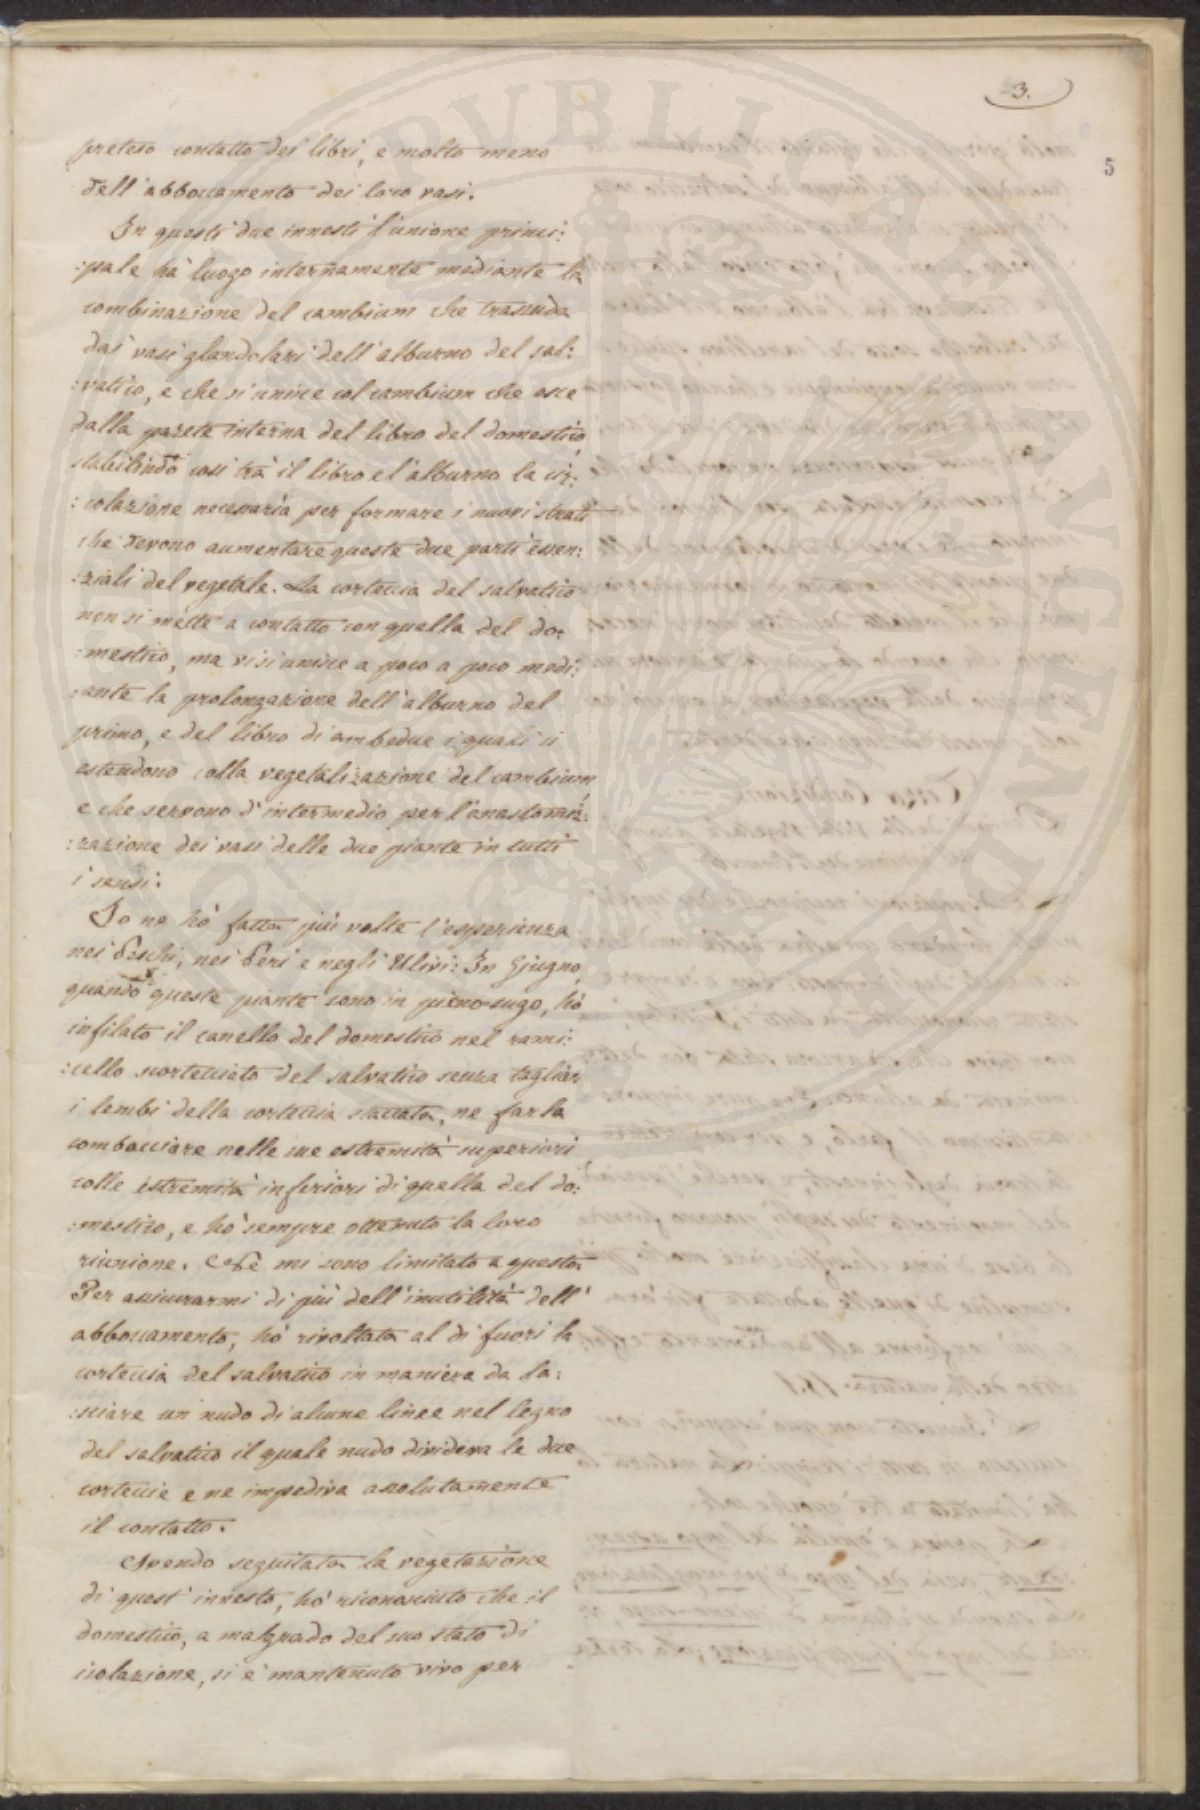 3.
5
preteso contatto dei libri, e molto meno
dell'abboccamento dei loro vasi.
In questi due innesti l'unione princi:
:pale hà luogo internamente mediante la
combinazione del cambium che trasuda
dai vasi glandolari dell'alburno del sal:
:vatico, e che si unisce col cambium che esce
dalla parete interna del libro del domestico,
stabilindo così trà il libro e l'alburno la cir:
:colazione necessaria per formare i nuovi strati
che devono aumentare queste due parti essen:
:ziali del vegetale. La corteccia del salvatico
non si mette a contatto con quella del do:
:mestico, ma vi si unisce a poco a poco medi:
:ante la prolongazione dell'alburno del
primo, e del libro di ambedue i quali si
estendono colla vegetalizazione del cambium,
e che servono d'intermedio per l'anastomiz:
:zazione dei vasi delle due piante in tutti
i sensi.
Io ne hò fatta più volte l'esperienza
nei Peschi, nei Peri e negli Ulivi: In Giugno,
quando queste piante sono in pieno sugo, hò
infilato il canello del domestico nel rami:
:cello scortecciato del salvatico senza tagliar
i lembi della corteccia staccata, ne farla
combacciare nelle sue estremità superiori
colle estremità inferiori di quella del do:
:mestico, e hò sempre ottenuto la loro
riunione. Nè mi sono limitato a questo.
Per assicurarmi di più dell'inutilità dell'
abboccamento, hò rivoltata al di fuori la
corteccia del salvatico in maniera da la:
:sciare un nudo di alcune linee nel legno
del salvatico il quale nudo divideva le due
corteccie e ne impediva assolutamente
il contatto.
Avendo seguitata la vegetazione
di quest'innesto, hò riconosciuto che il
domestico, a malgrado del suo stato di
isolazione, si è mantenuto vivo per